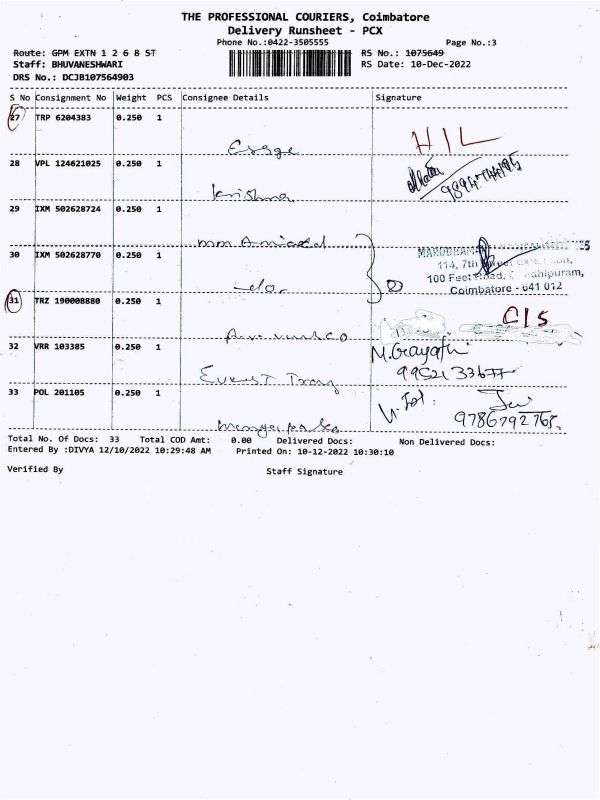 THE PROFESSIONAL COURIERS, Coimbatore
Delivery Runsheet - PCX
Phone No.:0422-3505555 Page No.:3
Route: GPM EXTN 1 2 6 8 ST RS No.: 1075649
Staff: BHUVANESHWARI RS Date: 10-Dec-2022
DRS No.: DCJB107564903
S No Consignment No Weight PCS Consignee Details Signature
27 TRP 6204383 0.250 1
H I L
28 VPL 124621025 0.250 1
Krishna
29 IXM 502628724 0.250 1
30 IXM 502628770 0.250 1
114, 7th
100 Feet Road,
Coimbatore - 641 012
-do-
31 TRZ 190008880 0.250 1
C I S
32 VRR 103385 0.250 1 M. Gayathri
33 POL 201105 0.250 1
9786792765
Total No. Of Docs: 33 Total COD Amt: 0.00 Delivered Docs: Non Delivered Docs:
Entered By :DIVYA 12/10/2022 10:29:48 AM Printed On: 10-12-2022 10:30:10
Verified By Staff Signature